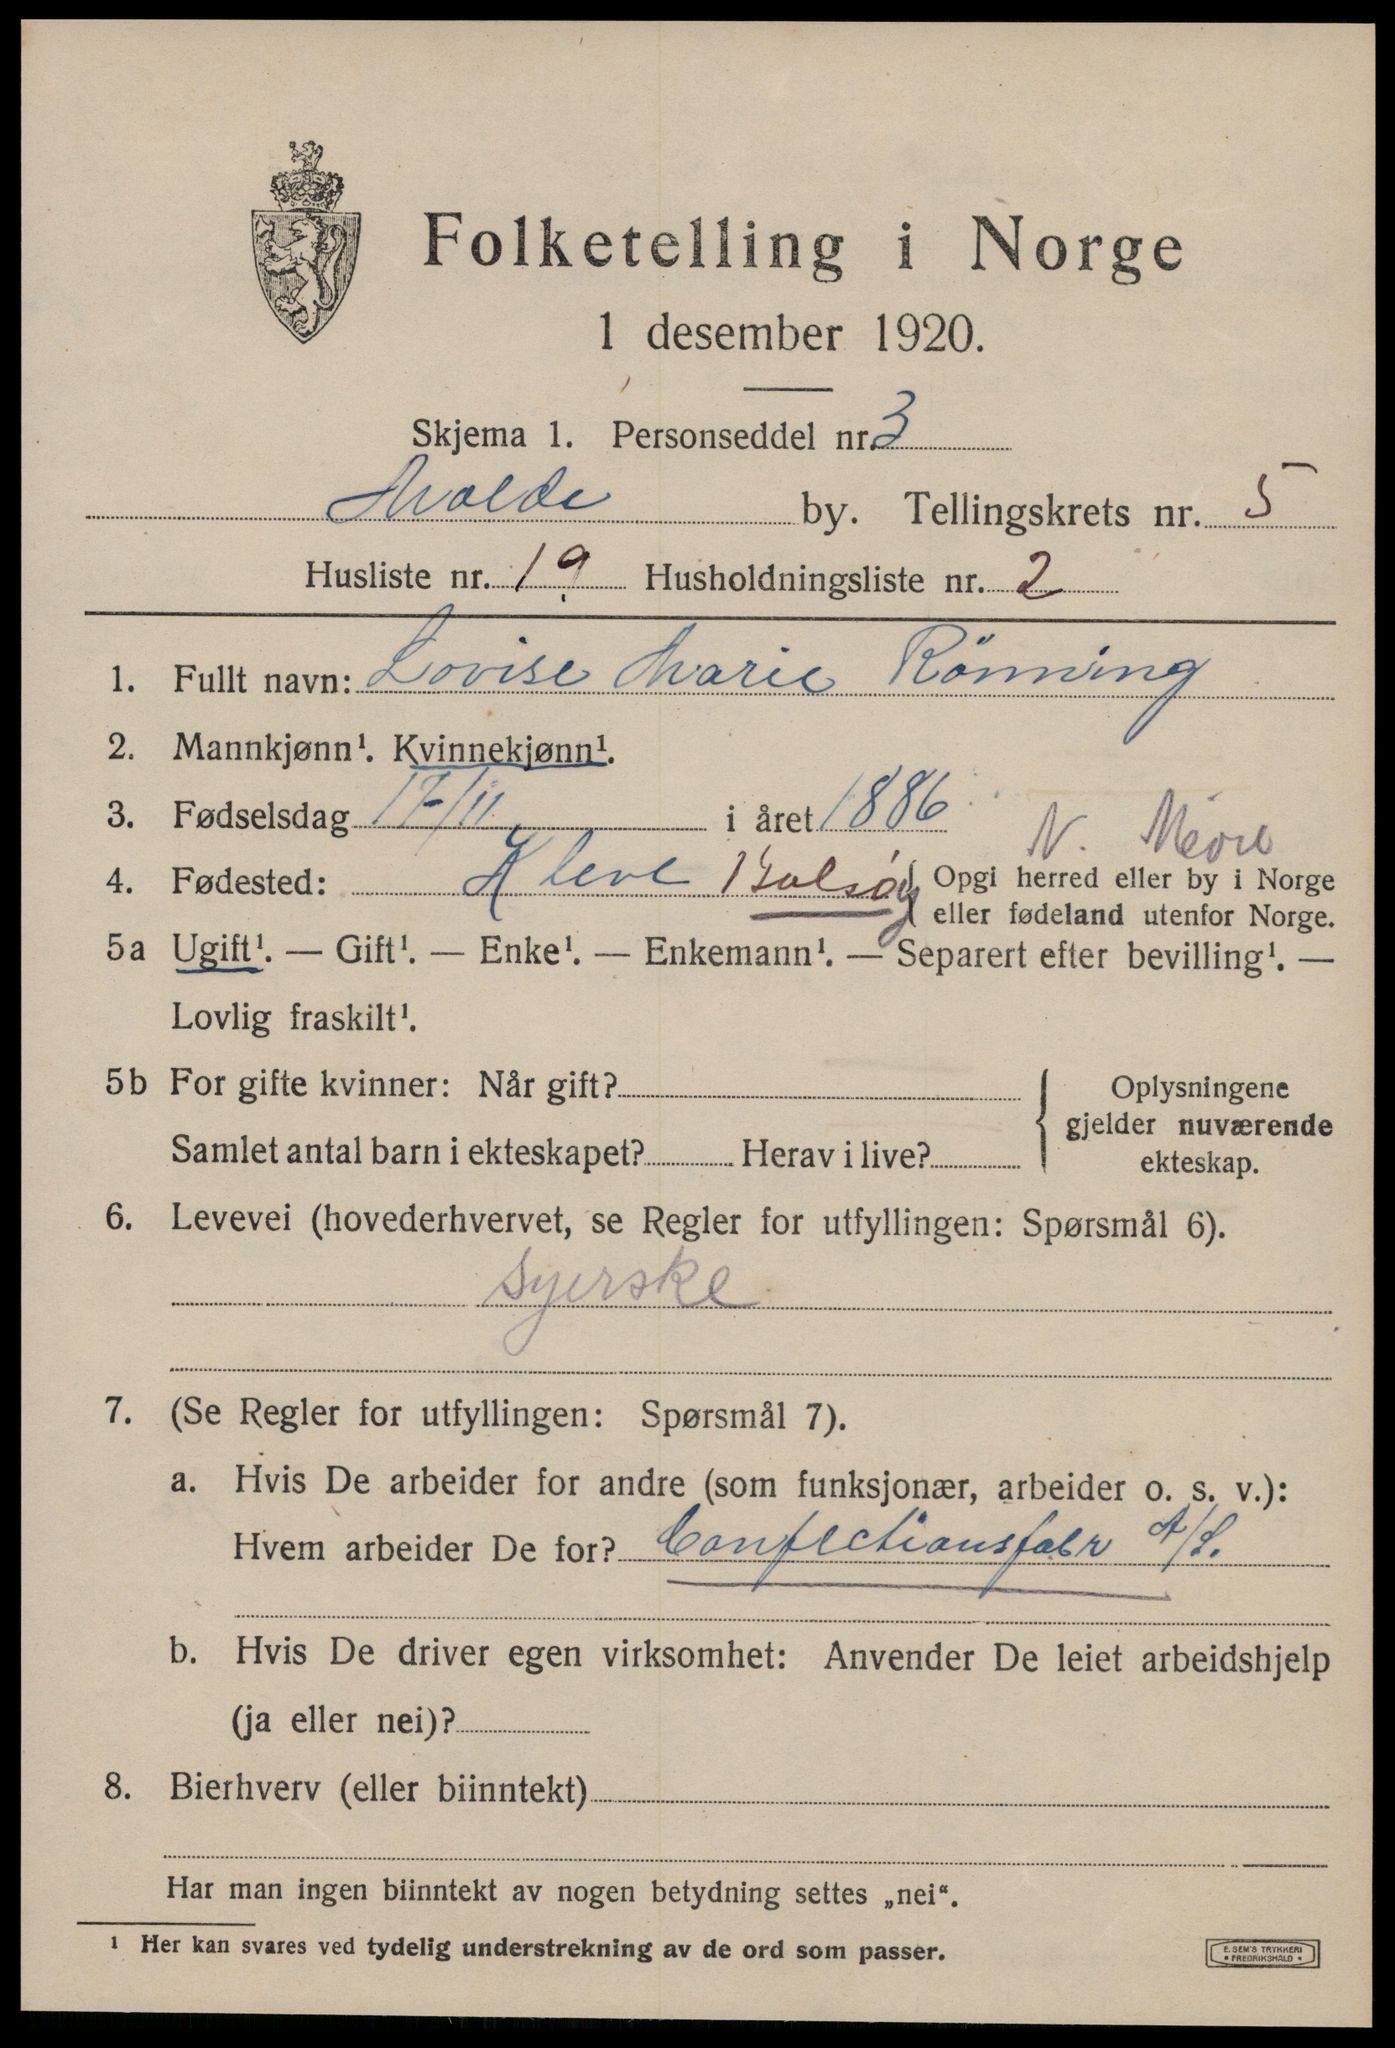 Folketelling i Norge
1 desember 1920.
Skjema 1. Personseddel nr. 3
Molde by. Tellingskrets nr. 5
Husliste nr. 19 Husholdningsliste nr. 2
1. Fullt navn: Lovise Marie Rönning
2. Mannkjønn¹. Kvinnekjønn¹.
3. Fødselsdag 17/11 i året 1886
N. Möre
4. Fødested: Kleve Bolsøy { Opgi herred eller by i Norge
eller fødeland utenfor Norge.
5a Ugift¹. — Gift¹. — Enke¹. — Enkemann¹. — Separert efter bevilling¹. —
Lovlig fraskilt¹.
5b For gifte kvinner: Når gift?
Samlet antal barn i ekteskapet? Herav i live?
Oplysningene
gjelder nuværende
ekteskap.
6. Levevei (hovederhvervet, se Regler for utfyllingen: Spørsmål 6).
Syerske
7. (Se Regler for utfyllingen: Spørsmål 7).
a. Hvis De arbeider for andre (som funksjonær, arbeider o. s. v.):
Hvem arbeider De for? Confectionsfabr A/S.
b. Hvis De driver egen virksomhet: Anvender De leiet arbeidshjelp
(ja eller nei)?
8. Bierhverv (eller biinntekt)
Har man ingen biinntekt av nogen betydning settes „nei“.
¹ Her kan svares ved tydelig understrekning av de ord som passer.
E. SEM'S TRYKKERI
• FREDRIKSHALD •